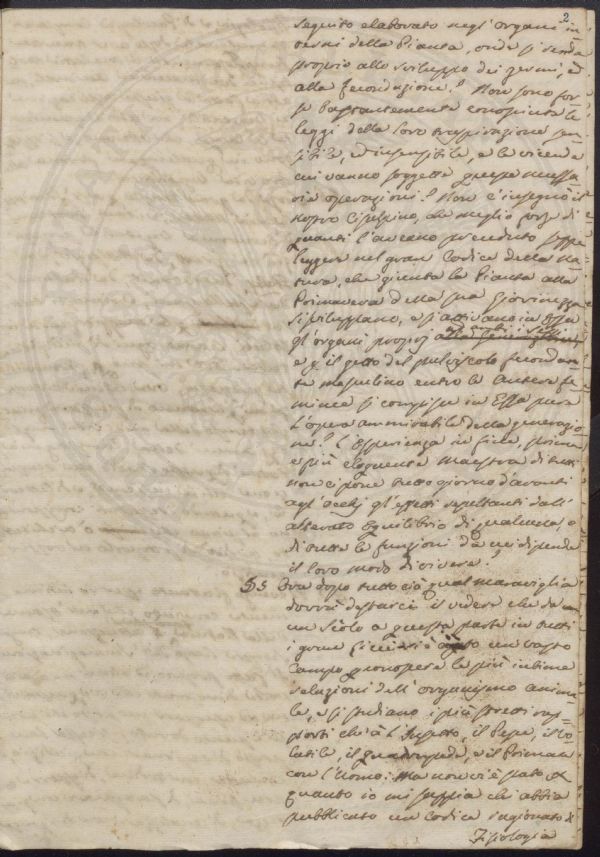 2
seguito elaborato negl'organi in=
terni della Pianta, onde si renda
proprio allo sviluppo dei germi, e
alla fecondazione? Non sono for=
se bastantemente conosciute le
leggi della loro traspirazione sen=
sibile, ed insensibile, e le vicende
cui vanno soggette queste
operazioni? Non c'insegnò il
nostro Cisalpino, che meglio forse di
quanti l'aveano preceduto seppe
leggere nel gran Codice della Na=
tura, che giunta la Pianta alla
Primavera della sua giovinezza
si sviluppano, e si attivano in Essa
gl'organi proprj
e che il getto del pulviscolo fecondan=
te mascolino entro le Antere fe=
minee si compisce in Essa pure
l'opera ammirabile della generazio=
ne? L'Esperienza in fine, prima
e più eloquente Maestra di tutti
non ci pone tutto giorno d'avanti
agl'occhj gl'effetti resultanti dall'
alterato Equilibrio di qualcuna, o
di tutte le funzioni da cui dipende
il loro modo di vivere?
Ora dopo tutto ciò qual maraviglia
dovrà destarci il vedere che da
un secolo a questa parte in tutti
i gran un vasto
campo le più intime
relazioni dell'organismo anima=
le, e si studiano i più stretti rap=
porti che à l'Insetto, il Pesce, il Vo=
latile, il quadrupede, e il
con l'Uomo: Ma non vi è stato
quanto io mi sappia chi abbia
pubblicato un Codice ragionato di
Fisiologia